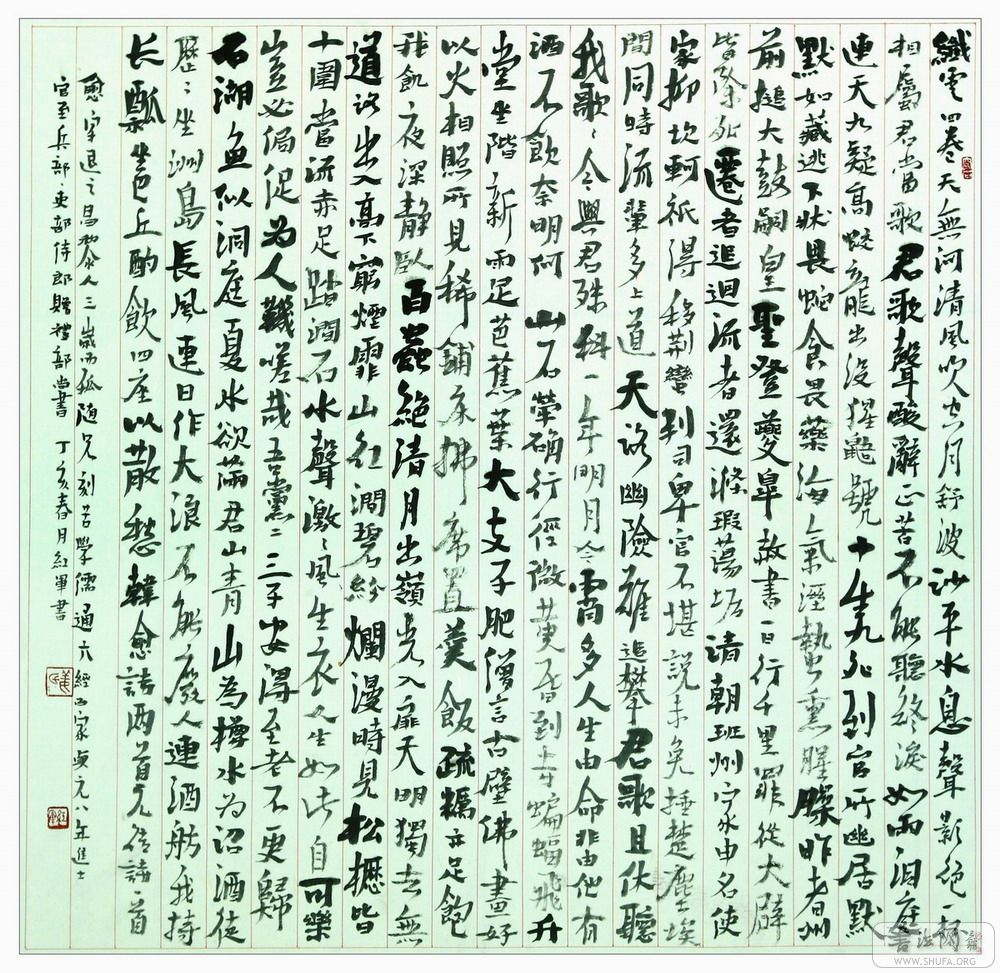 纖雲四卷天無河清風吹空月舒波沙平水息聲影絕一杯
相屬君當歌君歌聲酸辭正苦不能聽終淚如雨洞庭
連天九疑高蛟龍出沒猩鼯號十生九死到官所幽居默
默如藏逃下牀畏蛇食畏藥海氣溼蟄熏腥臊昨者州
前搥大鼓嗣皇聖登夔皋赦書一日行千里罪從大辟
皆除死遷者追迴流者還滌瑕蕩垢清朝班州家申名使
家抑坎軻祇得移荆蠻判司卑官不堪說未免捶楚塵埃
間同時流輩多上道天路幽險難追攀君歌且休聽
我歌々今與君殊科一年明月今宵多人生由命非由他有
酒不飲奈明何 山石犖确行徑微黃昏到寺蝙蝠飛升
堂坐階新雨足芭蕉葉大支子肥僧言古壁佛畫好
以火相照所見稀鋪床拂席置羹飯疏糲亦足飽
我飢夜深靜臥百蟲絕清月出嶺光入扉天明獨去無
道路出入高下窮煙霏山紅澗碧紛爛漫時見松櫪皆
十圍當流赤足踏澗石水聲激々風生衣人生如此自可樂
豈必侷促為人鞿嗟哉吾黨二三子安得至老不更歸
石湖魚似洞庭夏水欲滿君山青山為樽水為沼酒徒
歷々坐洲島長風連日作大浪不能廢人運酒舫我持
長瓢坐巴丘酌飲四座以散愁韓愈詩兩首元結詩一首
愈字退之昌黎人三歲而孤隨兄刻苦學儒通六經百家貞元八年進士
官至兵部吏部侍郎贈禮部尚書 丁亥春月紅軍書
書法網
WWW.SHUFA.ORG